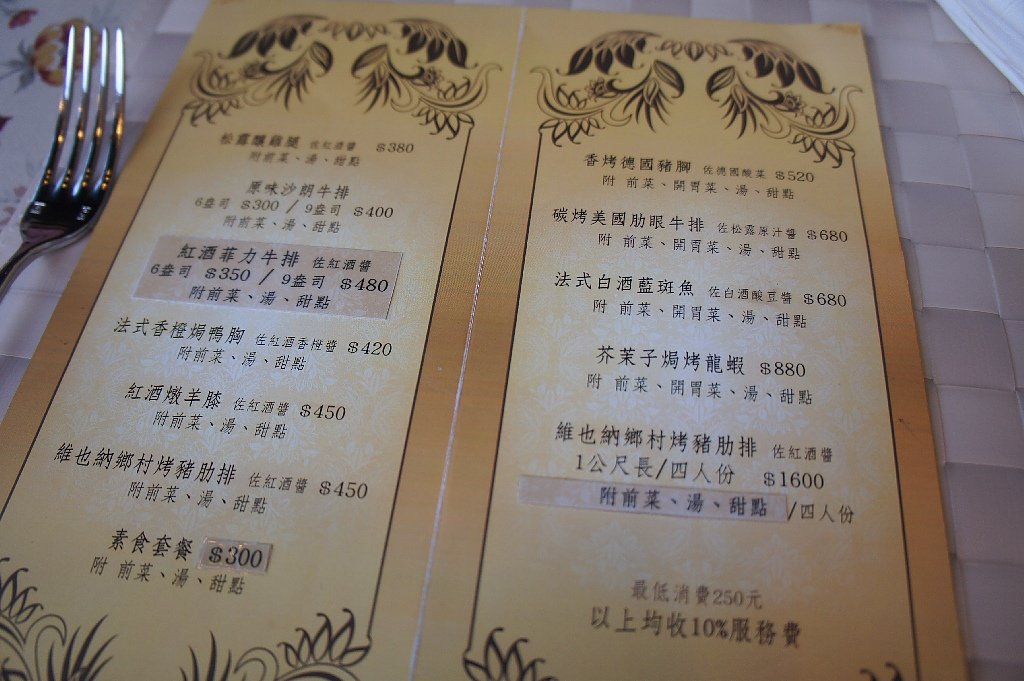 松露釀雞腿 佐紅酒醬 $380
附前菜、湯、甜點
原味沙朗牛排
6盎司 $300 / 9盎司 $400
附前菜、湯、甜點
紅酒菲力牛排 佐紅酒醬
6盎司 $350 / 9盎司 $480
附前菜、湯、甜點
法式香橙焗鴨胸 佐紅酒香橙醬 $420
附前菜、湯、甜點
紅酒燉羊膝 佐紅酒醬 $450
附前菜、湯、甜點
維也納鄉村烤豬肋排 佐紅酒醬 $450
附前菜、湯、甜點
素食套餐 $300
附 前菜、湯、甜點
香烤德國豬腳 佐德國酸菜 $520
附 前菜、開胃菜、湯、甜點
碳烤美國肋眼牛排 佐松露原汁醬 $680
附 前菜、開胃菜、湯、甜點
法式白酒藍斑魚 佐白酒酸豆醬 $680
附 前菜、開胃菜、湯、甜點
芥茉子焗烤龍蝦 $880
附 前菜、開胃菜、湯、甜點
維也納鄉村烤豬肋排 佐紅酒醬
1公尺長/四人份 $1600
附前菜、湯、甜點 /四人份
最低消費250元
以上均收10%服務費